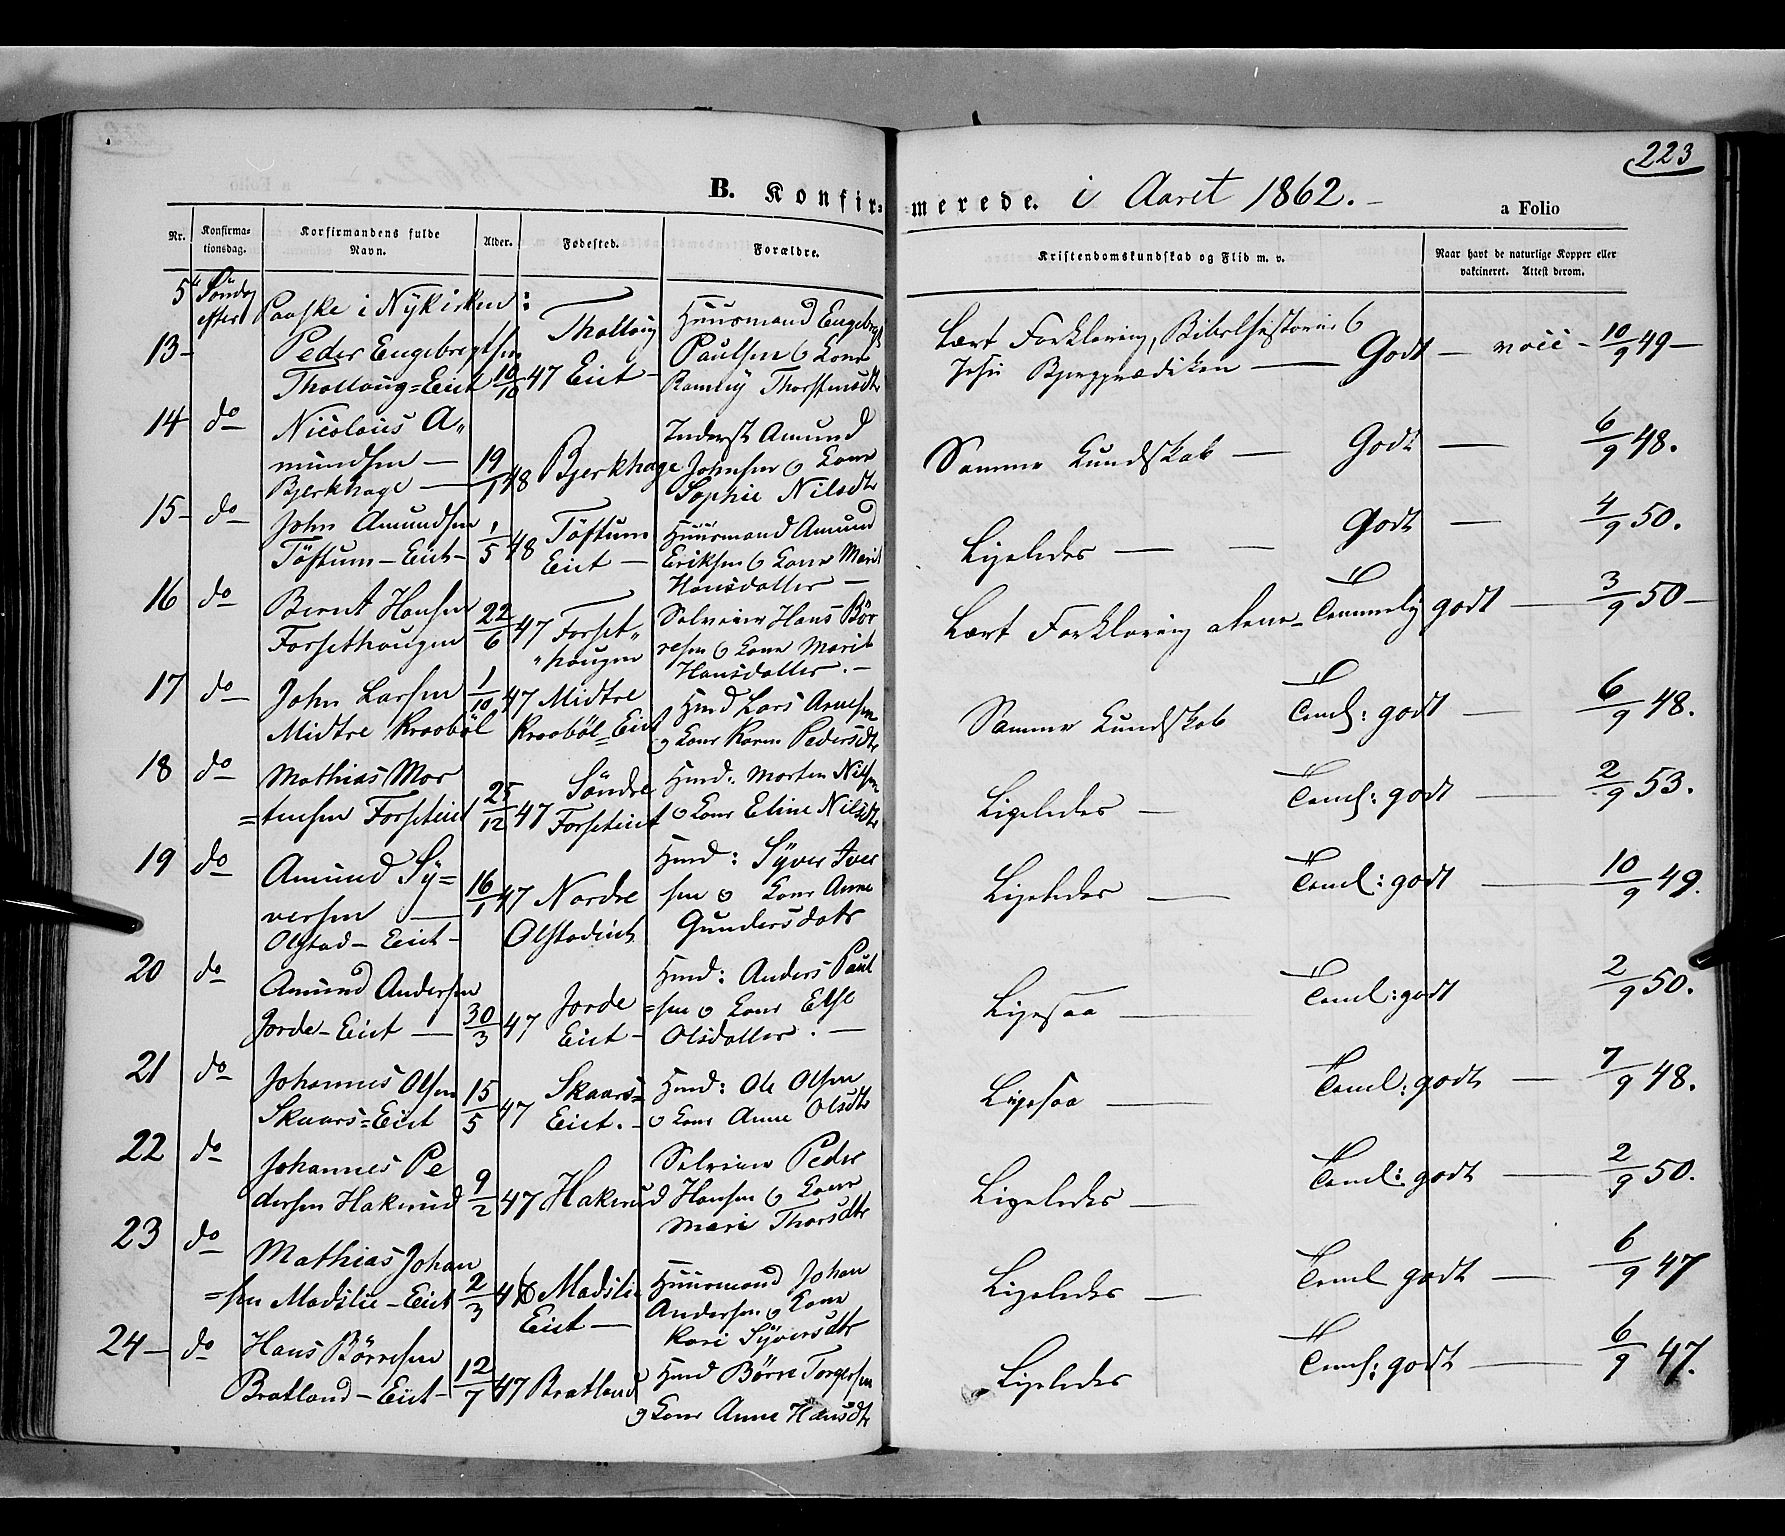 223
B. Konfir-merede. i Aaret 1862.-
a Folio
Nr.
Konfirma-
tionsdag.
Korfirmandens fulde
Navn.
Alder.
Fødested.
Forældre.
Kristendomskundskab og Flid m. v.
Naar havt de naturlige Kopper eller
vakcineret. Attest derom.
5te Søndag
efter Paaske i Nykirken:
13- Peder Engebregtsen
Thollaug=Eiet 10/10 47
Thollaug
Eiet -
Huusmand Engebregt
Paulsen & Kone
Thorstensdtr
Lært Forklaring, Bibelhistorie &
Jesu Bjergprædiken — Godt - vacc - 10/9 49-
14 do Nicolaus A„
mundsen —
Bjerkhage — 19/1 48 Bjerkhage
Inderst Amund
Johnsen & Kone
Sophie Nilsdtr
Samme Kundskab — Godt — 6/9 48.
15- do John Amundsen
Töftum-Eiet- 1/5 48
Töftum
Eiet —
Huusmand Amund
Eriksen & Kone Marit
Hansdatter —
Ligeledes — — Godt — 4/9 50.
16 do Bernt Hansen
Forsethaugen 22/6 47
Forset„
„haugen
Selveier Hans Bör
resen & Kone Marit
Hansdatter. -
Lært Forklaring alene - Temmelig godt — 3/9 50-
17 do John Larsen
Midtre Kraaböl 1/10 47
Midtre
Kraaböl=Eiet
Hmd Lars Arnesen
& Kone Karen Pedersdtr
Samme Kundskab Teml: godt — 6/9 48.
18 do Mathias Mor
=tensen Forseteiet 25/12 47
Söndre
Forseteiet
Hmd: Morten Nilsen
& Kone Eline Nilsdtr
Ligeledes — Teml: godt — 2/9 53.
19 do Amund Sy=
versen —
Olstad-Eiet- 16/1 47
Nordre
Olstadeiet
Hmd: Syver Iver
sen & Kone Anne
Gundersdatr
Ligeledes — Teml: godt — 10/9 49.
20 do Amund Andersen
Jorde-Eiet — 30/3 47
Jorde
Eiet -
Hmd: Anders Paul
=sen & Kone Else
Olsdatter. —
Ligesaa — Teml: godt 2/9 50.
21 do Johannes Olsen
Skaars=Eiet 15/5 47
Skaars=
Eiet. -
Hmd: Ole Olsen
& Kone Anne Olsdtr
Ligesaa — Teml: godt — 7/9 48.
22 do Johannes Pe
dersen Hakerud 9/2 47 Hakerud
Selveier Peder
Hansen & Kone
Mari Thorsdtr
Ligeledes — Teml: godt — 2/9 50.
23 do Mathias Johan
=sen Madslie-Eiet 2/3 46
Madslie
Eiet —
Huusmand Johan
Andersen & Kone
Kari Syversdtr
Ligeledes — Teml godt — 6/9 47
24- do Hans Börresen
Bratland-Eiet- 12/7 47 Bratland
Hmd Börre Torgersen
& Kone Anne Hansdtr
Ligeledes Teml: godt — 6/9 47.